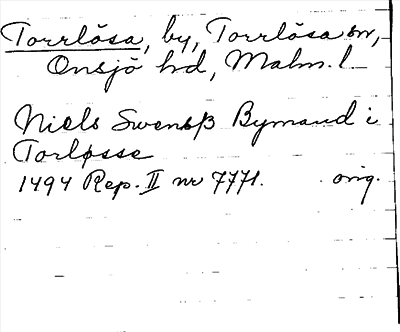 Torrlösa, by, Torrlösa sn,
Onsjö hd, Malm. l
Niels Swenß Bymand i
Torløsse
1494 Rep. II nr 7771. orig.